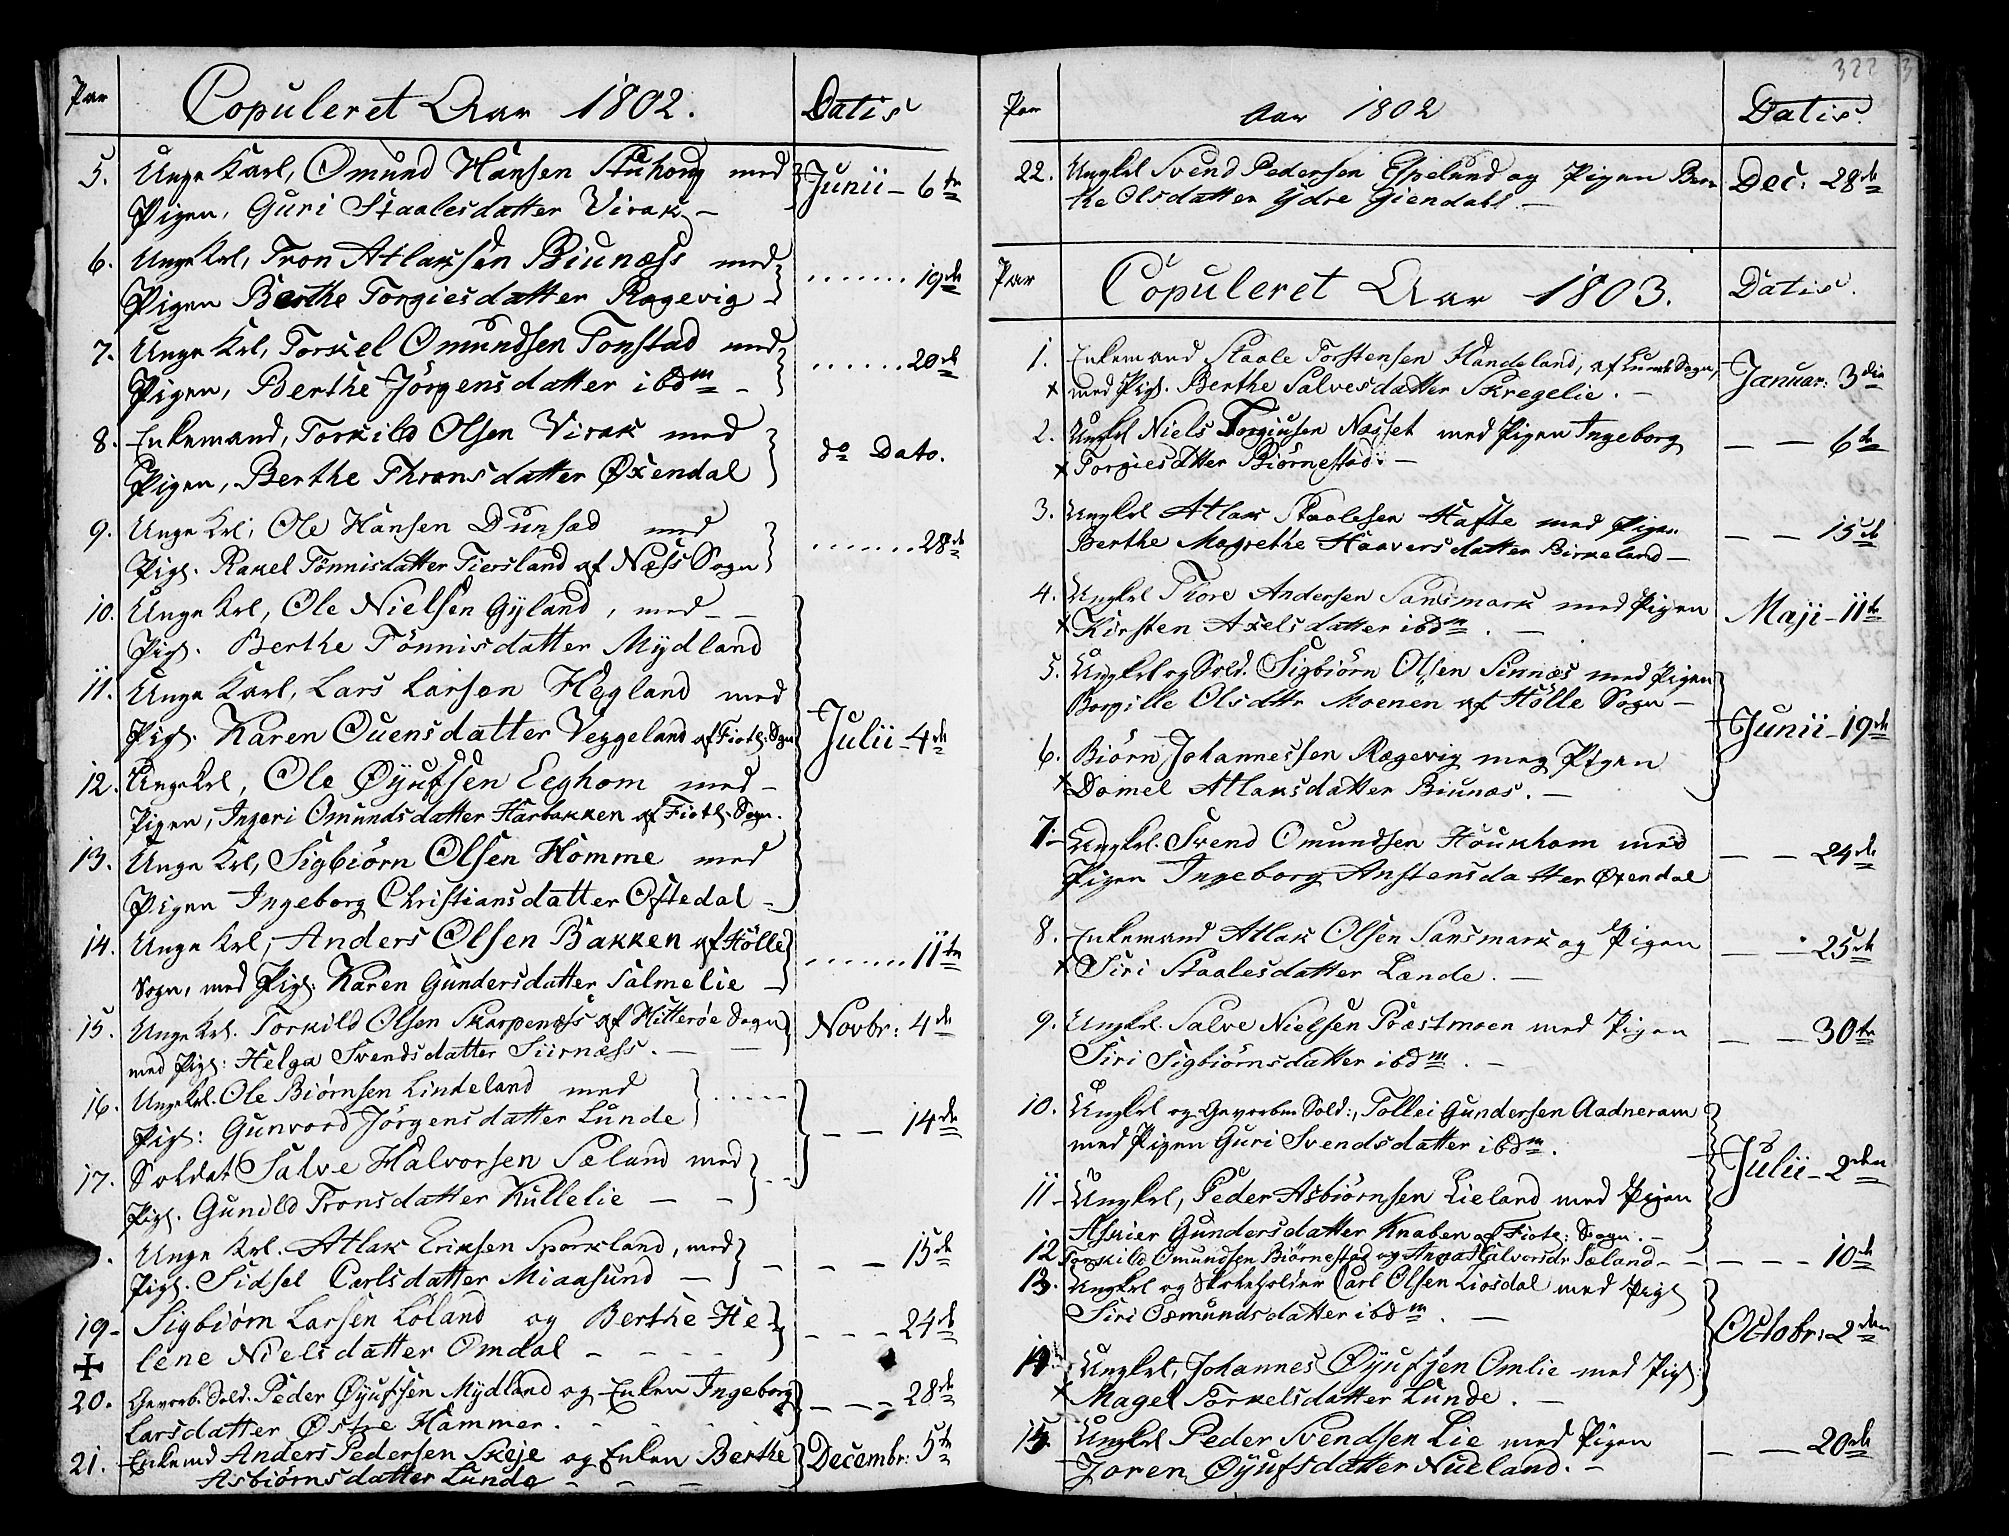 Par Copuleret Aar 1802. Datis
5. Unge Karl, Omund Hansen Stuhoug med Junii - 6te
Pigen, Guri Staalesdatter Virak -
6. Unge Krl, Tron Atlaksen Biunæss med
Pigen Berthe Torgiesdatter Rægevig - ....... 19de
7. Unge Krl, Torkel Omundsen Tonstad med
Pigen, Berthe Jörgensdatter ibdm - ....... 20de
8. Enkemand, Torkild Olsen Virak med
Pigen, Berthe Thronsdatter Øxendal do Dato.
9. Unge Krl, Ole Hansen Dunsæd med
Pig. Rakel Tönnisdatter Tiersland af Næss Sogn ....... 28de
10. Unge Krl, Ole Nielsen Gyland, med -
Pig. Berthe Tönnisdatter Mydland
11. Unge Karl, Lars Larsen Hegland med
Pig. Karen Ouensdatter Veggeland af Fiotl: Sogn Julii - 4de
12. Unge Krl, Ole Øyufsen Eeghom med -
Pigen, Ingeri Omundsdatter Harbakken af Fiotl. Sogn.
13. Unge Krl, Sigbiørn Olsen Homme med
Pigen Ingeborg Christiansdatter Oftedal -
14. Unge Krl, Anders Olsen Bakken af Hölle
Sogn, med Pig: Karen Gundersdatter Salmelie - ....... 11te
15. Unge Krl. Torkild Olsen Skarpenæss af Hitterøe Sogn Novbr: 4de
med Pig: Helga Svendsdatter Siirnæss. -
16. Unge Krl. Ole Biørnsen Lindeland med
Pig: Gunvord Jörgensdatter Lunde - - 14de
17. Soldat Salve Halvorsen Sæland med
Pig. Gunild Tronsdatter Kullelie - -
Unge Krl. Atlak Eriksen Sporkland, med - - - 15de
Pig. Sidsel Carlsdatter Miaasund -
19 - Sigbiørn Larsen Løland og Berthe He - - - 24de
lene Nielsdatter Omdal - - - -
20. Gevorb. Sold. Peder Øyufsen Mydland og Enken Ingeborg - - - 28de
Larsdatter Østre Hammer. - - - -
21. Enkemd Anders Pedersen Skeje og Enken Berthe Decembr: 5te
Asbiörnsdatter Lunde - - - -
322
Par Aar 1802 Datis.
22. Ungkrl Svend Pedersen Espelund og Pigen Ber= Dec: 28de
the Olsdatter Ydre Giendahl. -
Par Copuleret Aar 1803. Datis.
1. Enkemand Staale Torstensen Handeland, af Lunds Sogn,
x med Pig. Berthe Salvesdatter Skregelie. - Januar: 3die
2. Ungkrl Niels Torgiusen Nasset med Pigen Ingeborg - - 6te
x Torgiesdatter Biörnestad: -
3. Ungkrl Atlak Staalesen Hafte med Pigen
Berthe Magrethe Haaversdatter Birkeland - - - 15de
4. Ungkrl Thore Andersen Sandsmark med Pigen Maji - 11te
x Kirsten Axelsdatter ibdm. -
5. Ungkrl og Sold. Sigbiörn Olsen Sinnæs med Pigen
Borgille Olsdttr Moenen af Hölle Sogn - Junii - 19de
6. Biörn Johannessen Rægevig meg Pigen
x Domel Atlaksdatter Biunæs. -
7. Ungkrl. Svend Omundsen Houkhom med
Pigen Ingeborg Anstensdatter Øxendal - - 24de
8. Enkemand Atlak Olsen Sansmark og Pigen - - 25de
x Siri Staalesdatter Lande. -
9. Ungkrl. Salve Nielsen Præstmoen med Pigen - - 30te
Siri Sigbiörnsdatter ibdm. -
10. Ungkrl og Gevorben Sold:, Tollei Gundersen Aadneram
med Pigen Guri Svendsdatter ibdm. Julii - 2den
11 - Ungkrl, Peder Asbiörnsen Lieland med Pigen
Askier Gundersdatter Knaben af Fiotl: Sogn. -
12 Torkild Omundsen Biörnestad og Anna Halvorsdr Sæland - - - - - 10de
13. Ungkrl og Skolehollder Carl Olsen Liosdal med Pig
Siri Osmundsdatter ibdm. - Octobr: 2den
14 Ungkrl, Johannes Øyufsen Omlie med Pig.
x Magel Torkelsdatter Lunde. -
15. Ungkrl Peder Svendsen Lie med Pigen - - 20de
Joren Øyufsdatter Nueland. -